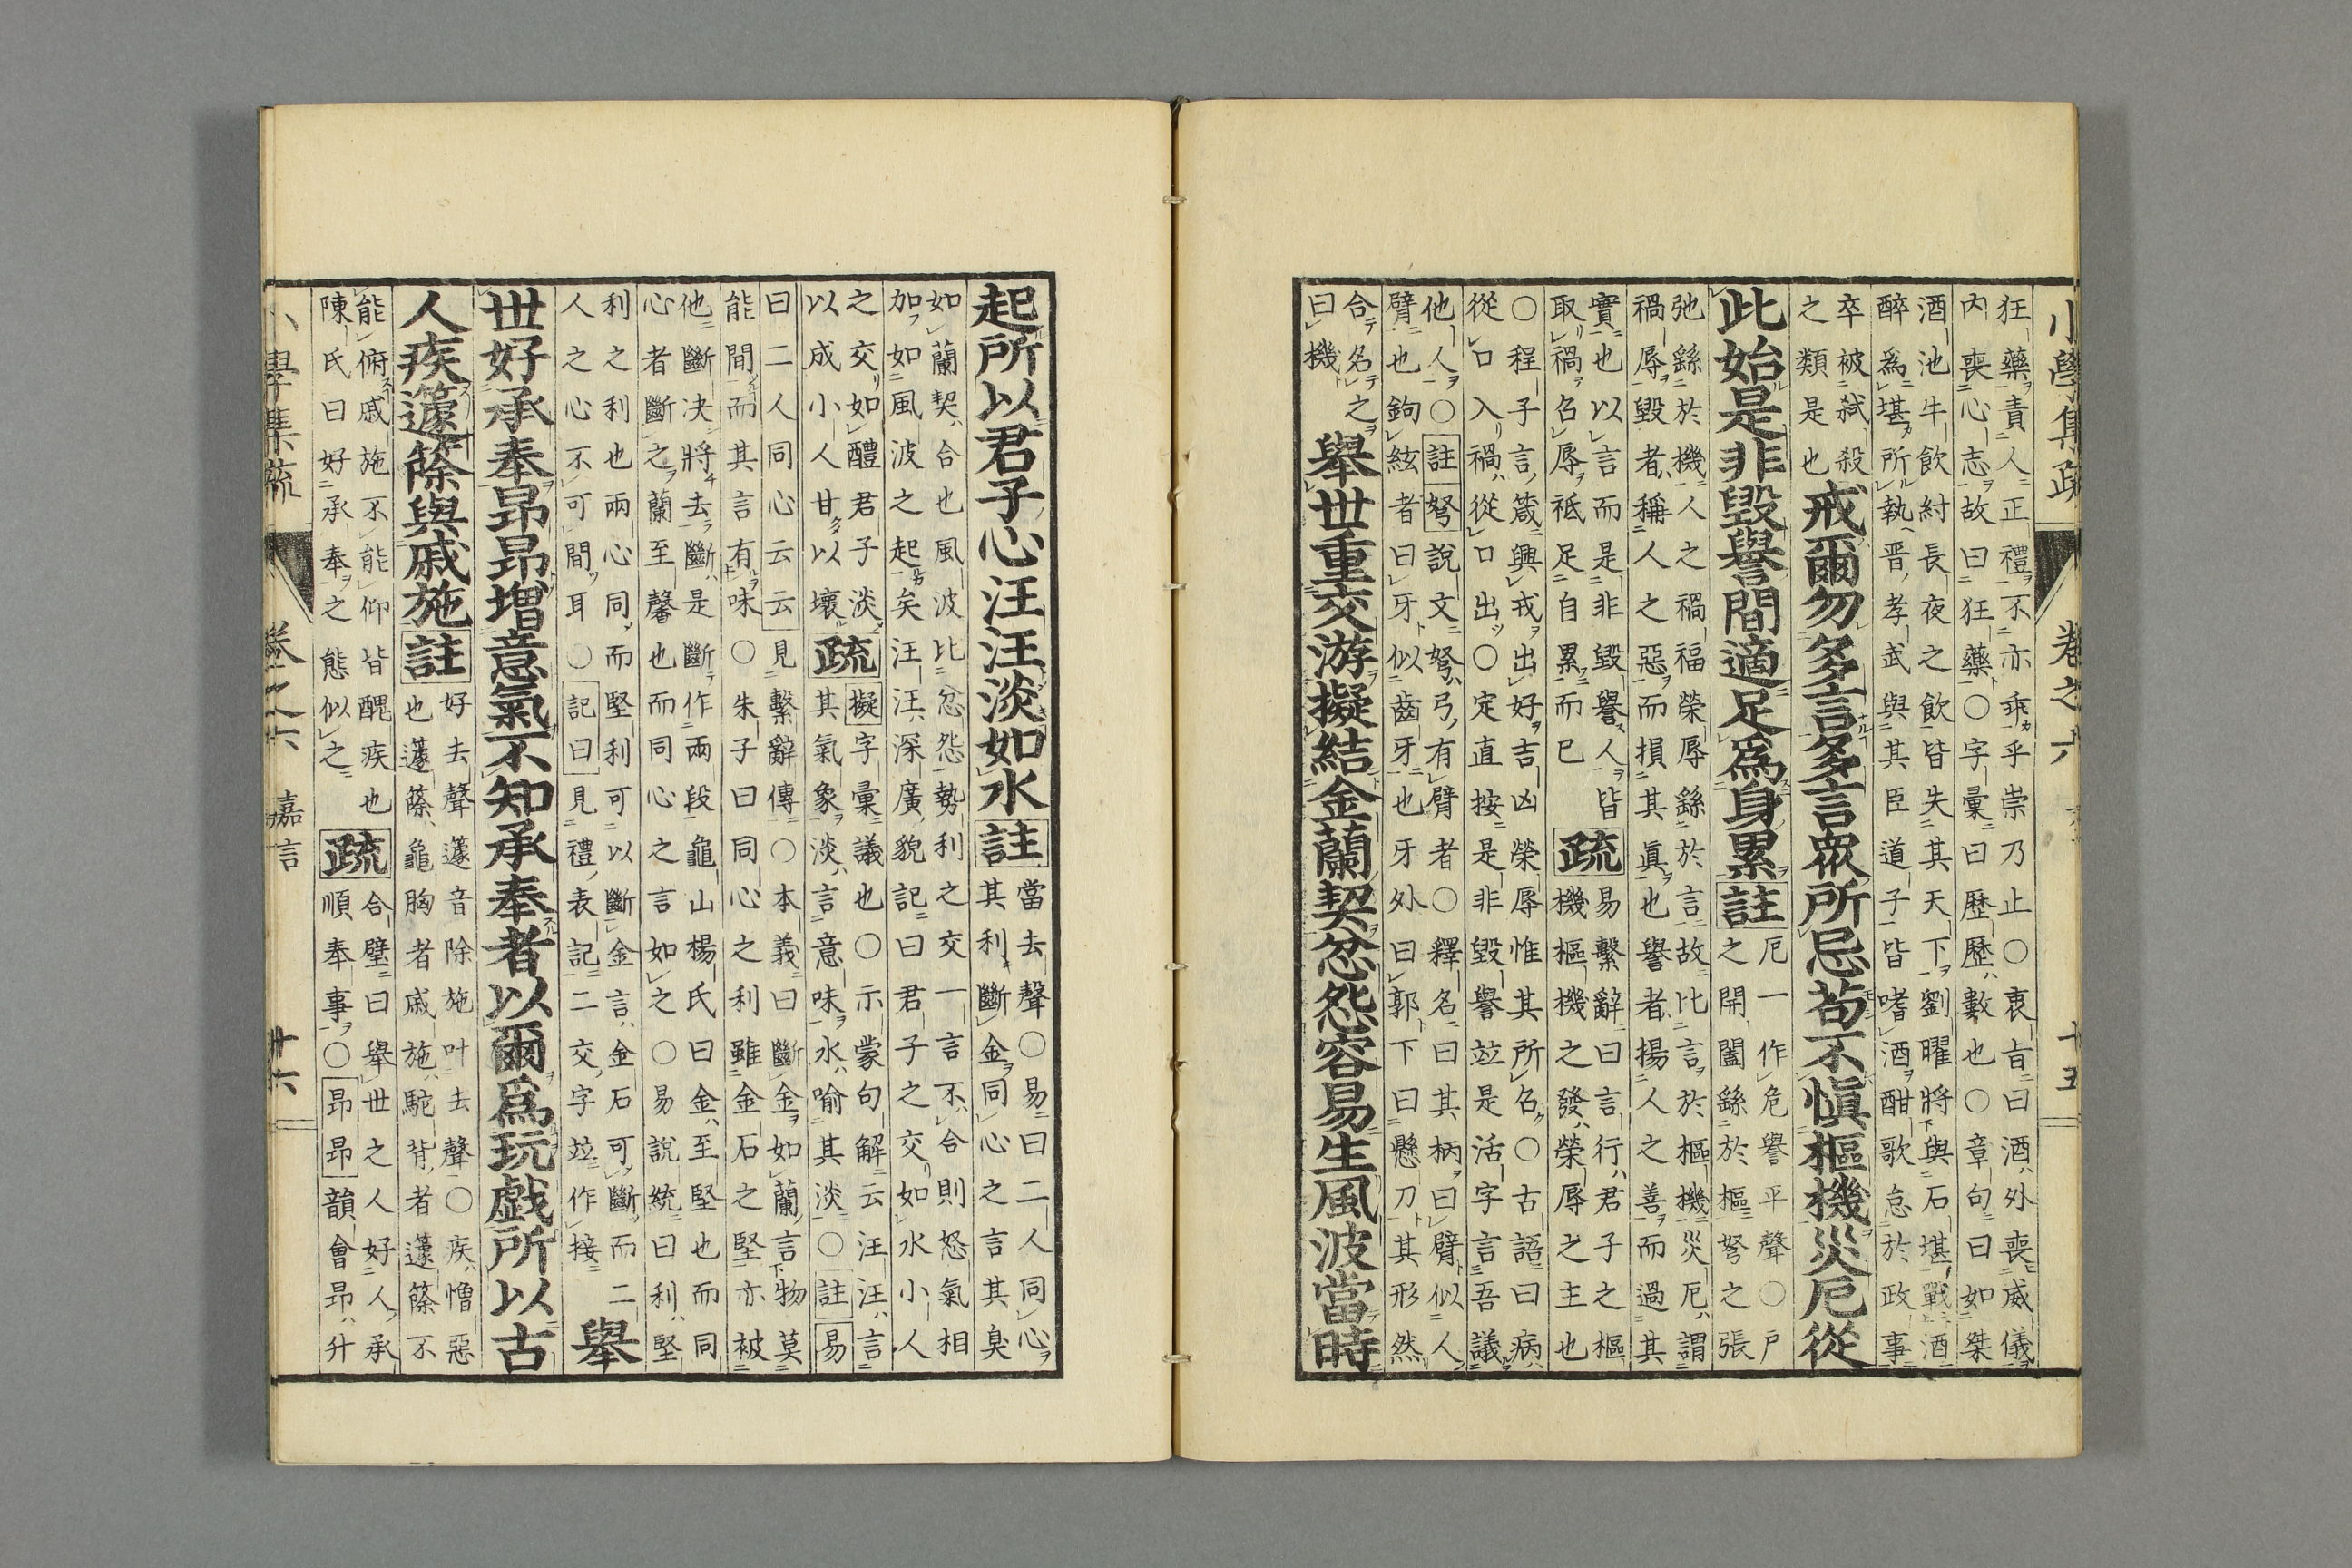 小學集疏 卷之六 十五
狂藥責人正禮不亦乖乎崇乃止〇衷旨曰酒外喪威儀
内喪心志故曰狂藥〇字彙曰歷歷數也〇章句曰如桀
酒池牛飲紂長夜之飲皆失其天下劉曜將與石堪戰酒
醉爲堪所執晋孝武與其臣道子皆嗜酒酣歌怠於政事
卒被弑殺
之類是也
戒爾勿多言多言衆所忌苟不愼樞機災厄從
此始是非毀譽間適足爲身累註
厄一作危譽平聲〇戸
之開闔繇於樞弩之張
弛繇於機人之禍福榮辱繇於言故比言於樞機災厄謂
禍辱毀者稱人之惡而損其眞也譽者揚人之善而過其
實也以言而是非毀譽人皆
取禍召辱祗足自累而已
疏
易繫辭曰言行君子之樞
機樞機之發榮辱之主也
〇程子言箴興戎出好吉凶榮辱惟其所召〇古語曰病
從口入禍從口出〇定直按是非毀譽竝是活字言吾議
他人〇註弩說文弩弓有臂者〇釋名曰其柄曰臂似人
臂也鉤絃者曰牙似齒牙也牙外曰郭下曰懸刀其形然
合名之
曰機
舉世重交游擬結金蘭契忿怨容易生風波當時
起所以君子心汪汪淡如水註
當去聲〇易曰二人同心
其利斷金同心之言其臭
如蘭契合也風波比忿怨勢利之交一言不合則怒氣相
加如風波之起矣汪汪深廣貌記曰君子之交如水小人
之交如醴君子淡
以成小人甘以壞
疏
擬字彙議也〇示蒙句解云汪汪言
其氣象淡言意味水喻其淡〇註易
曰二人同心云云見繫辭傳〇本義曰斷金如蘭言物莫
能間而其言有味〇朱子曰同心之利雖金石之堅亦被
他斷決將去斷是斷作兩段龜山楊氏曰金至堅也而同
心者斷之蘭至馨也而同心之言如之〇易說統曰利堅
利之利也兩心同而堅利可以斷金言金石可斷而二
人之心不可間耳〇記曰見禮表記二交字竝作接
舉
世好承奉昂昂増意氣不知承奉者以爾爲玩戲所以古
人疾籧篨與戚施註
好去聲籧音除施叶去聲〇疾憎惡
也籧篨龜胸者戚施駝背者籧篨不
能俯戚施不能仰皆醜疾也
陳氏曰好承奉之態似之
疏
合璧曰舉世之人好人承
順奉事〇昂昂韻會昂升
小學集疏 卷之六 嘉言 廿六